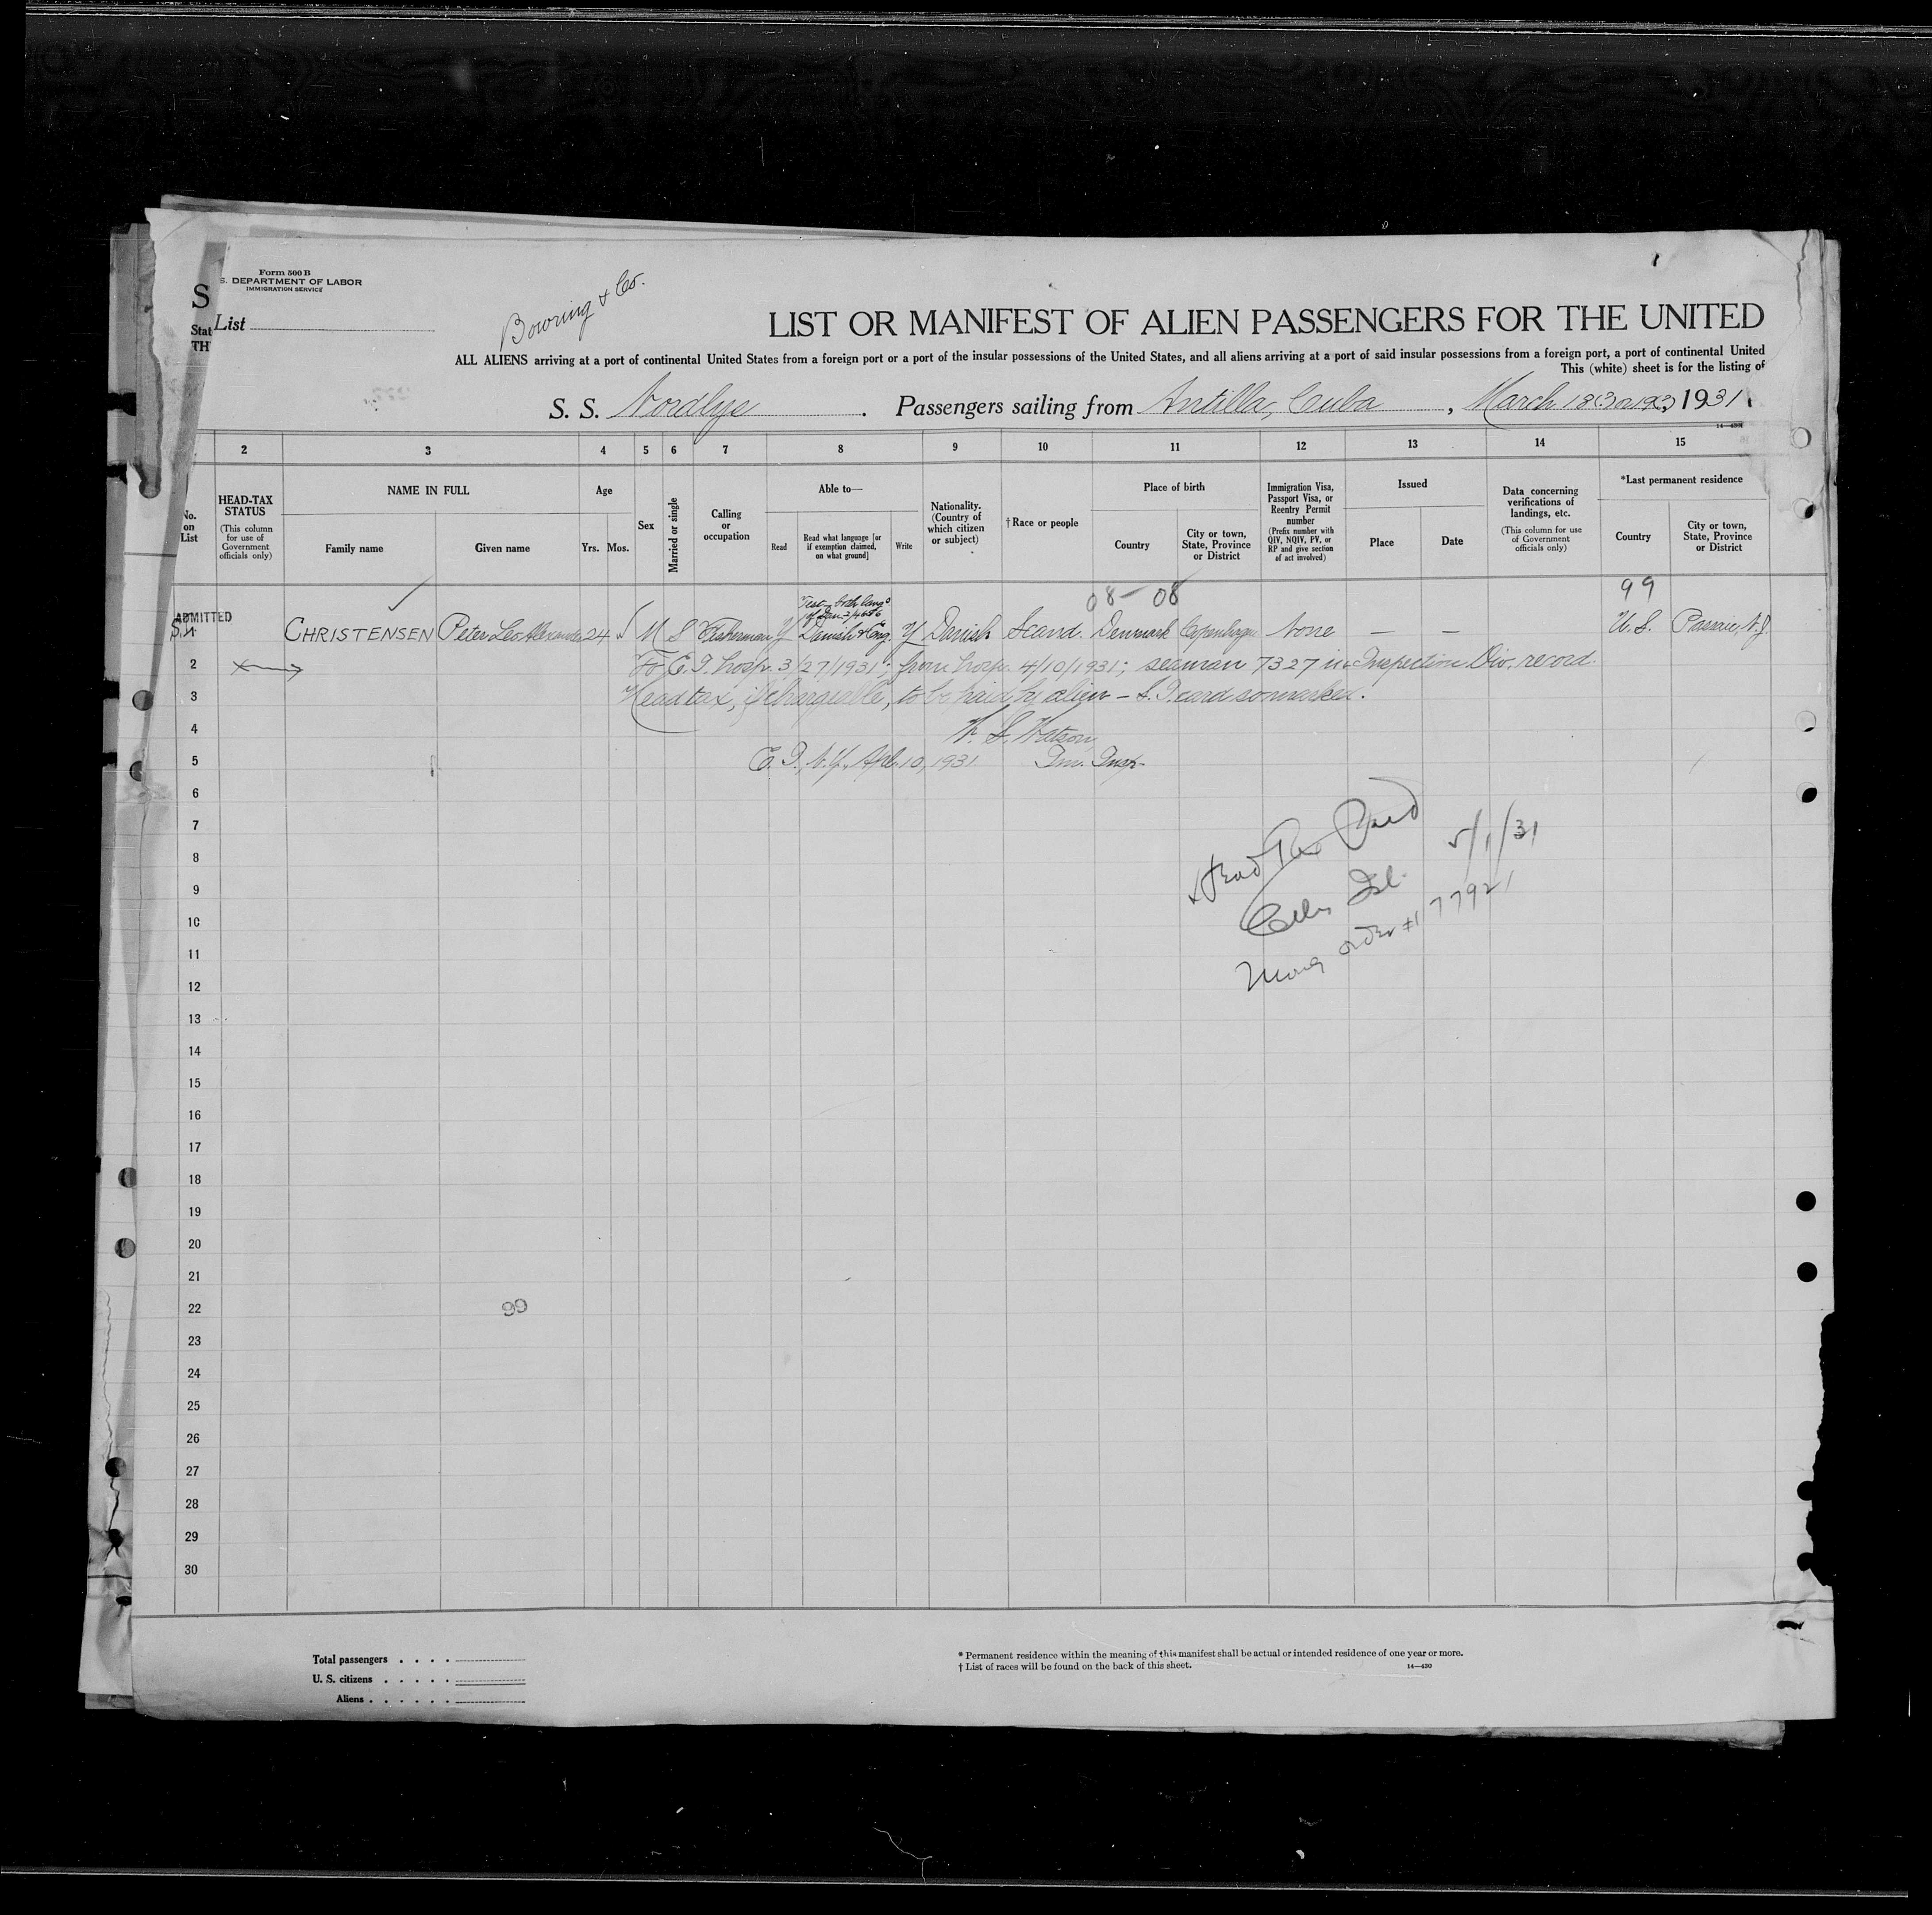 Form 500 B
S. DEPARTMENT OF LABOR
IMMIGRATION SERVICE
S
Stat
TH
List
Bowring & Co.
LIST OR MANIFEST OF ALIEN PASSENGERS FOR THE UNITED
ALL ALIENS arriving at a port of continental United States from a foreign port or a port of the insular possessions of the United States, and all aliens arriving at a port of said insular possessions from a foreign port, a port of continental United
This (white) sheet is for the listing of
S. S. Nordlys . Passengers sailing from Antilla, Cuba , March 18 (? or 19?) 1931
2 3 4 5 6 7 8 9 10 11 12 13 14 15
No. on List
HEAD-TAX STATUS
(This column for use of Government officials only)
NAME IN FULL
Family name Given name
Age
Yrs. Mos.
Sex
Married or single
Calling or occupation
Able to—
Read
Read what language [or if exemption claimed, on what ground]
Write
Nationality. (Country of which citizen or subject)
†Race or people
Place of birth
Country
City or town, State, Province or District
Immigration Visa, Passport Visa, or Reentry Permit number
(Prefix number with QIV, NQIV, PV, or RP and give section of act involved)
Issued
Place Date
Data concerning verifications of landings, etc.
(This column for use of Government officials only)
*Last permanent residence
Country
City or town, State, Province or District
08 - 08
99
ADMITTED
CHRISTENSEN Peter Leo Alexander 24 M S Fisherman Y Danish & Eng. Y Danish Scand. Denmark Copenhagen None — — U. S. Passaic, N.J.
2 To E. I. hosp. 3/27/1931; from hosp. 4/10/1931; seaman 7327 in Inspection Div. record.
3 Head tax, if chargeable, to be paid by alien - S. I. card so marked.
4 W. S. Watson
5 E. I., N.Y., Apl. 10, 1931 Im. Insp.
6
7
8
9
10
11
12
13
14
15
16
17
18
19
20
21
22 99
23
24
25
26
27
28
29
30
Head Tax Paid
Ellis Isl. 5/1/31
Money order # 177921
Total passengers
U. S. citizens
Aliens
* Permanent residence within the meaning of this manifest shall be actual or intended residence of one year or more.
† List of races will be found on the back of this sheet.
14—430